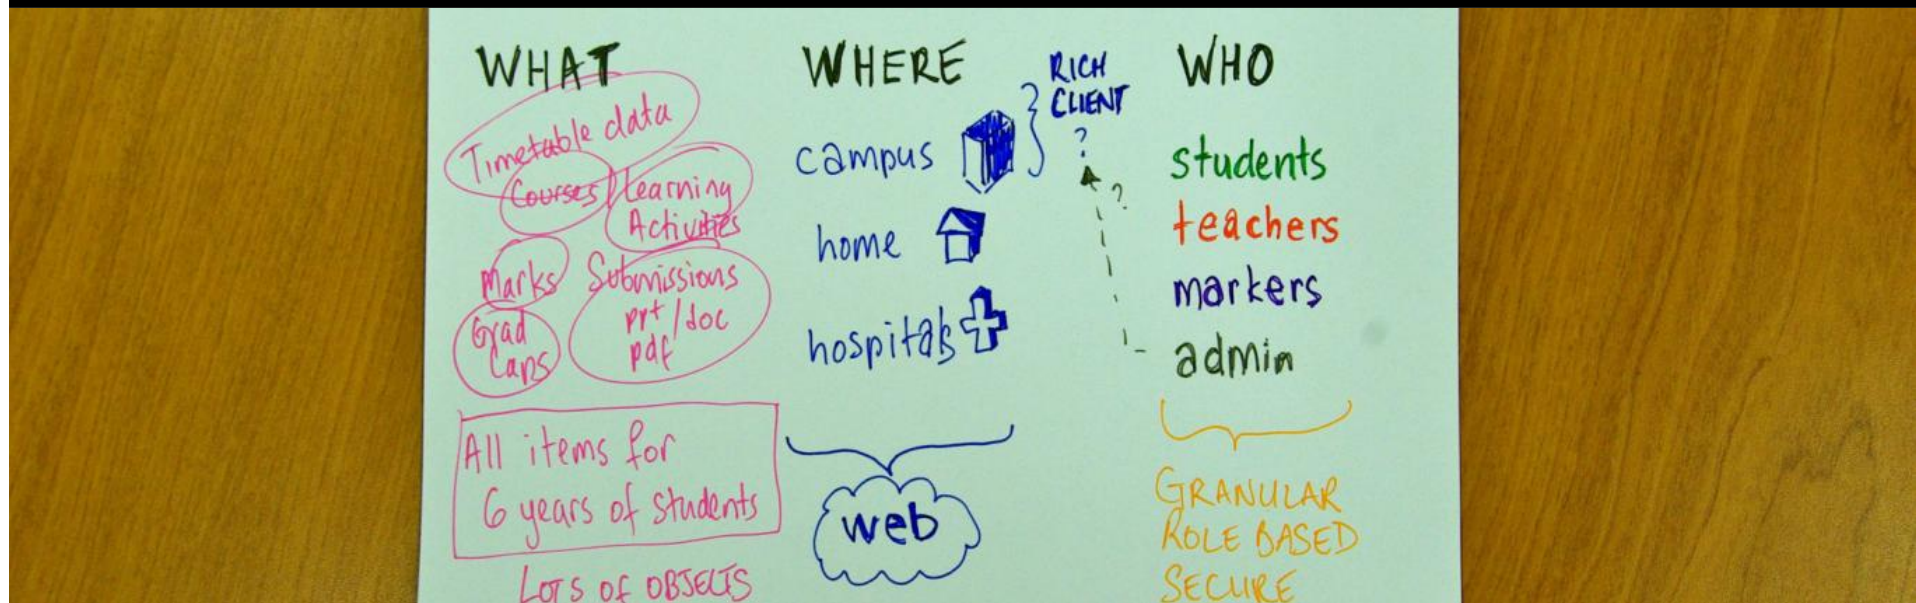 WHAT
Timetable data
Courses
Learning
Activities
Marks
Submissions
ppt/doc
pdf
Grad
Caps
All items for
6 years of students
LOTS OF OBJECTS
WHERE
campus
home
hospitals
web
RICH
CLIENT
?
?
WHO
students
teachers
markers
admin
GRANULAR
ROLE BASED
SECURE